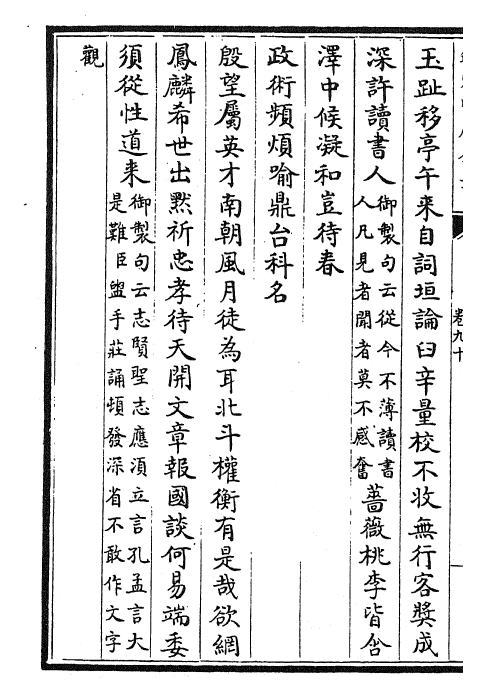 卷九十
玉趾移亭午来自詞垣論臼辛量校不收無行客奬成
深許讀書人御製句云從今不薄讀書人凡見者聞者莫不感奮薔薇桃李皆含
澤中候凝和豈待春
政術頻煩喻鼎台科名
殷望屬英才南朝風月徒為耳北斗權衡有是哉欲網
鳳麟希世出黙祈忠孝待天開文章報國談何易端委
須從性道来御製句云志賢聖志應須立言孔孟言大是難臣盥手莊誦頓發深省不敢作文字
觀